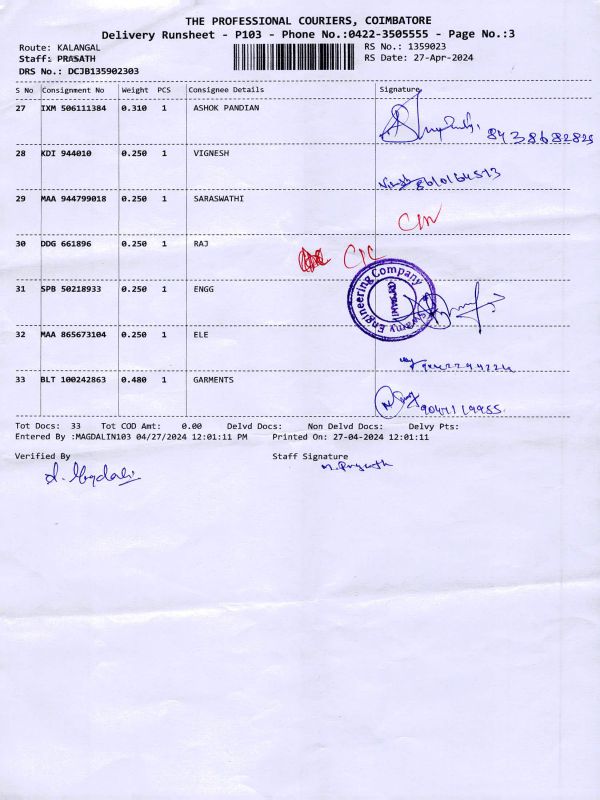 THE PROFESSIONAL COURIERS, COIMBATORE
Delivery Runsheet - P103 - Phone No.:0422-3505555 - Page No.:3
Route: KALANGAL RS No.: 1359023
Staff: PRASATH RS Date: 27-Apr-2024
DRS No.: DCJB135902303
S No Consignment No Weight PCS Consignee Details Signature
27 IXM 506111384 0.310 1 ASHOK PANDIAN
28 KDI 944010 0.250 1 VIGNESH
29 MAA 944799018 0.250 1 SARASWATHI
30 DDG 661896 0.250 1 RAJ
31 SPB 50218933 0.250 1 ENGG
Engineering Company
32 MAA 865673104 0.250 1 ELE
33 BLT 100242863 0.480 1 GARMENTS
Tot Docs: 33 Tot COD Amt: 0.00 Delvd Docs: Non Delvd Docs: Delvy Pts:
Entered By :MAGDALIN103 04/27/2024 12:01:11 PM Printed On: 27-04-2024 12:01:11
Verified By Staff Signature